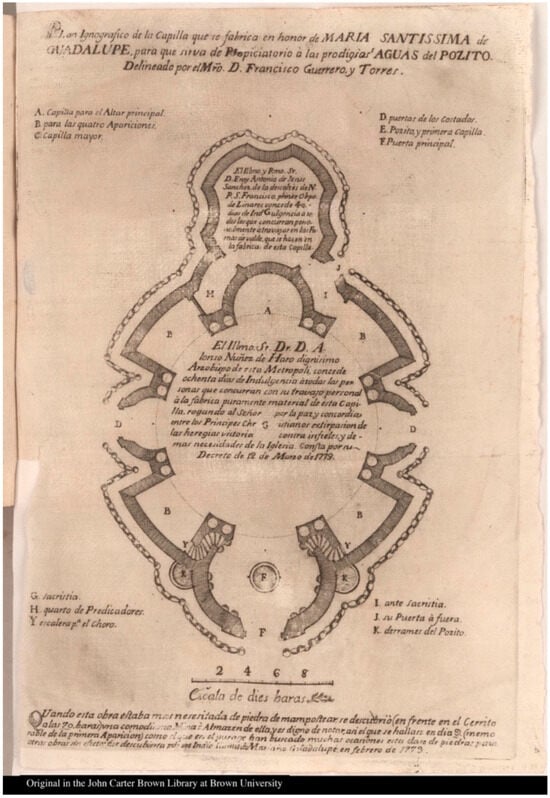 Plan Ignografico de la Capilla que se fabrica en honor de MARIA SANTISSIMA de
GUADALUPE, para que sirva de Propiciatorio à las prodigias.s AGUAS del POZITO.
Delineado por el Mro. D. Francisco Guerrero, y Torres.
A. Capilla para el Altar principal.
B. para las quatro Apariciones.
C. Capilla mayor.
D. puertas de los Costados.
E. Pozito, y primera Capilla.
F. Puerta principal.
El Illmo. y Rmo. Sr.
D. Fray Antonio de Jesus
Sanchez, de la descalses de N.
P. S. Francisco, primer Obpo.
de Linares concede 40
dias de Indulgencia à to
dos los que concurran perso
nalmente à travajar en las Fa
enas de valde, que se hacen en
la fabrica de esta Capilla.
J
H
I
A
B
B
El Illmo. Sr. Dr. D. A
lonso Nuñez de Haro dignisimo
Arzobispo de esta Metropoli, concede
ochenta dias de Indulgencia à todas las per
sonas que concurran con su travajo personal
à la fábrica puramente material de esta Capi
lla, rogando al Señor por la paz y concordia
entre los Principes Chr C istianos extirpasion de
las heregias victoria contra infieles, y de
mas necesidades de la Iglesia. Consta por su
Decreto de 12 de Marzo de 1779.
D
D
B
B
Y
Y
K
F
K
F
G. sacristia.
H. quarto de Predicadores.
Y. escalera pa. el Choro.
I. ante Sacristia.
J. su Puerta à fuera.
K. derrames del Pozito.
2 4 6 8
Escala de dies baras.
Quando esta obra estaba mas nesesitada de piedra de mampostear se descubrió (en frente en el Cerrito
a las 70. baras) una comodisima Mina ò Almazen de ella, y es digno de notar, en el que se halla en dia 9. (memo
rable de la primera Aparicion) como el que en el parage han buscado muchas ocasiones esta clase de piedras para
otras obras sin efecto, fue descubierta por un Indio llamado Mariano Guadalupe, en febrero de 1779.
Original in the John Carter Brown Library at Brown University